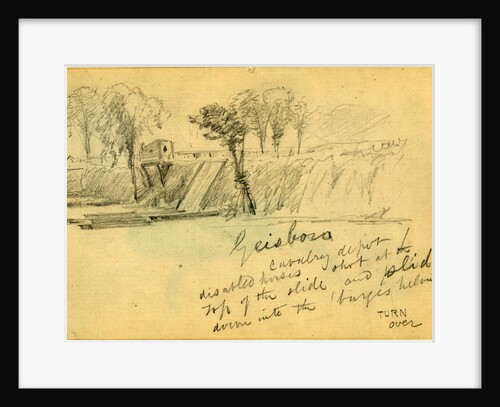 Geisboro
cavalry depot
disabled horses shot at the
top of the slide and slid
down into the barges below
TURN
over